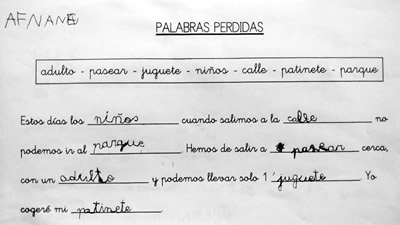 AFNANE
PALABRAS PERDIDAS
adulto - pasear - juguete - niños - calle - patinete - parque
Estos días los niños cuando salimos a la calle no
podemos ir al parque. Hemos de salir a pasear cerca,
con un adulto y podemos llevar solo 1 juguete. Yo
cogeré mi patinete.